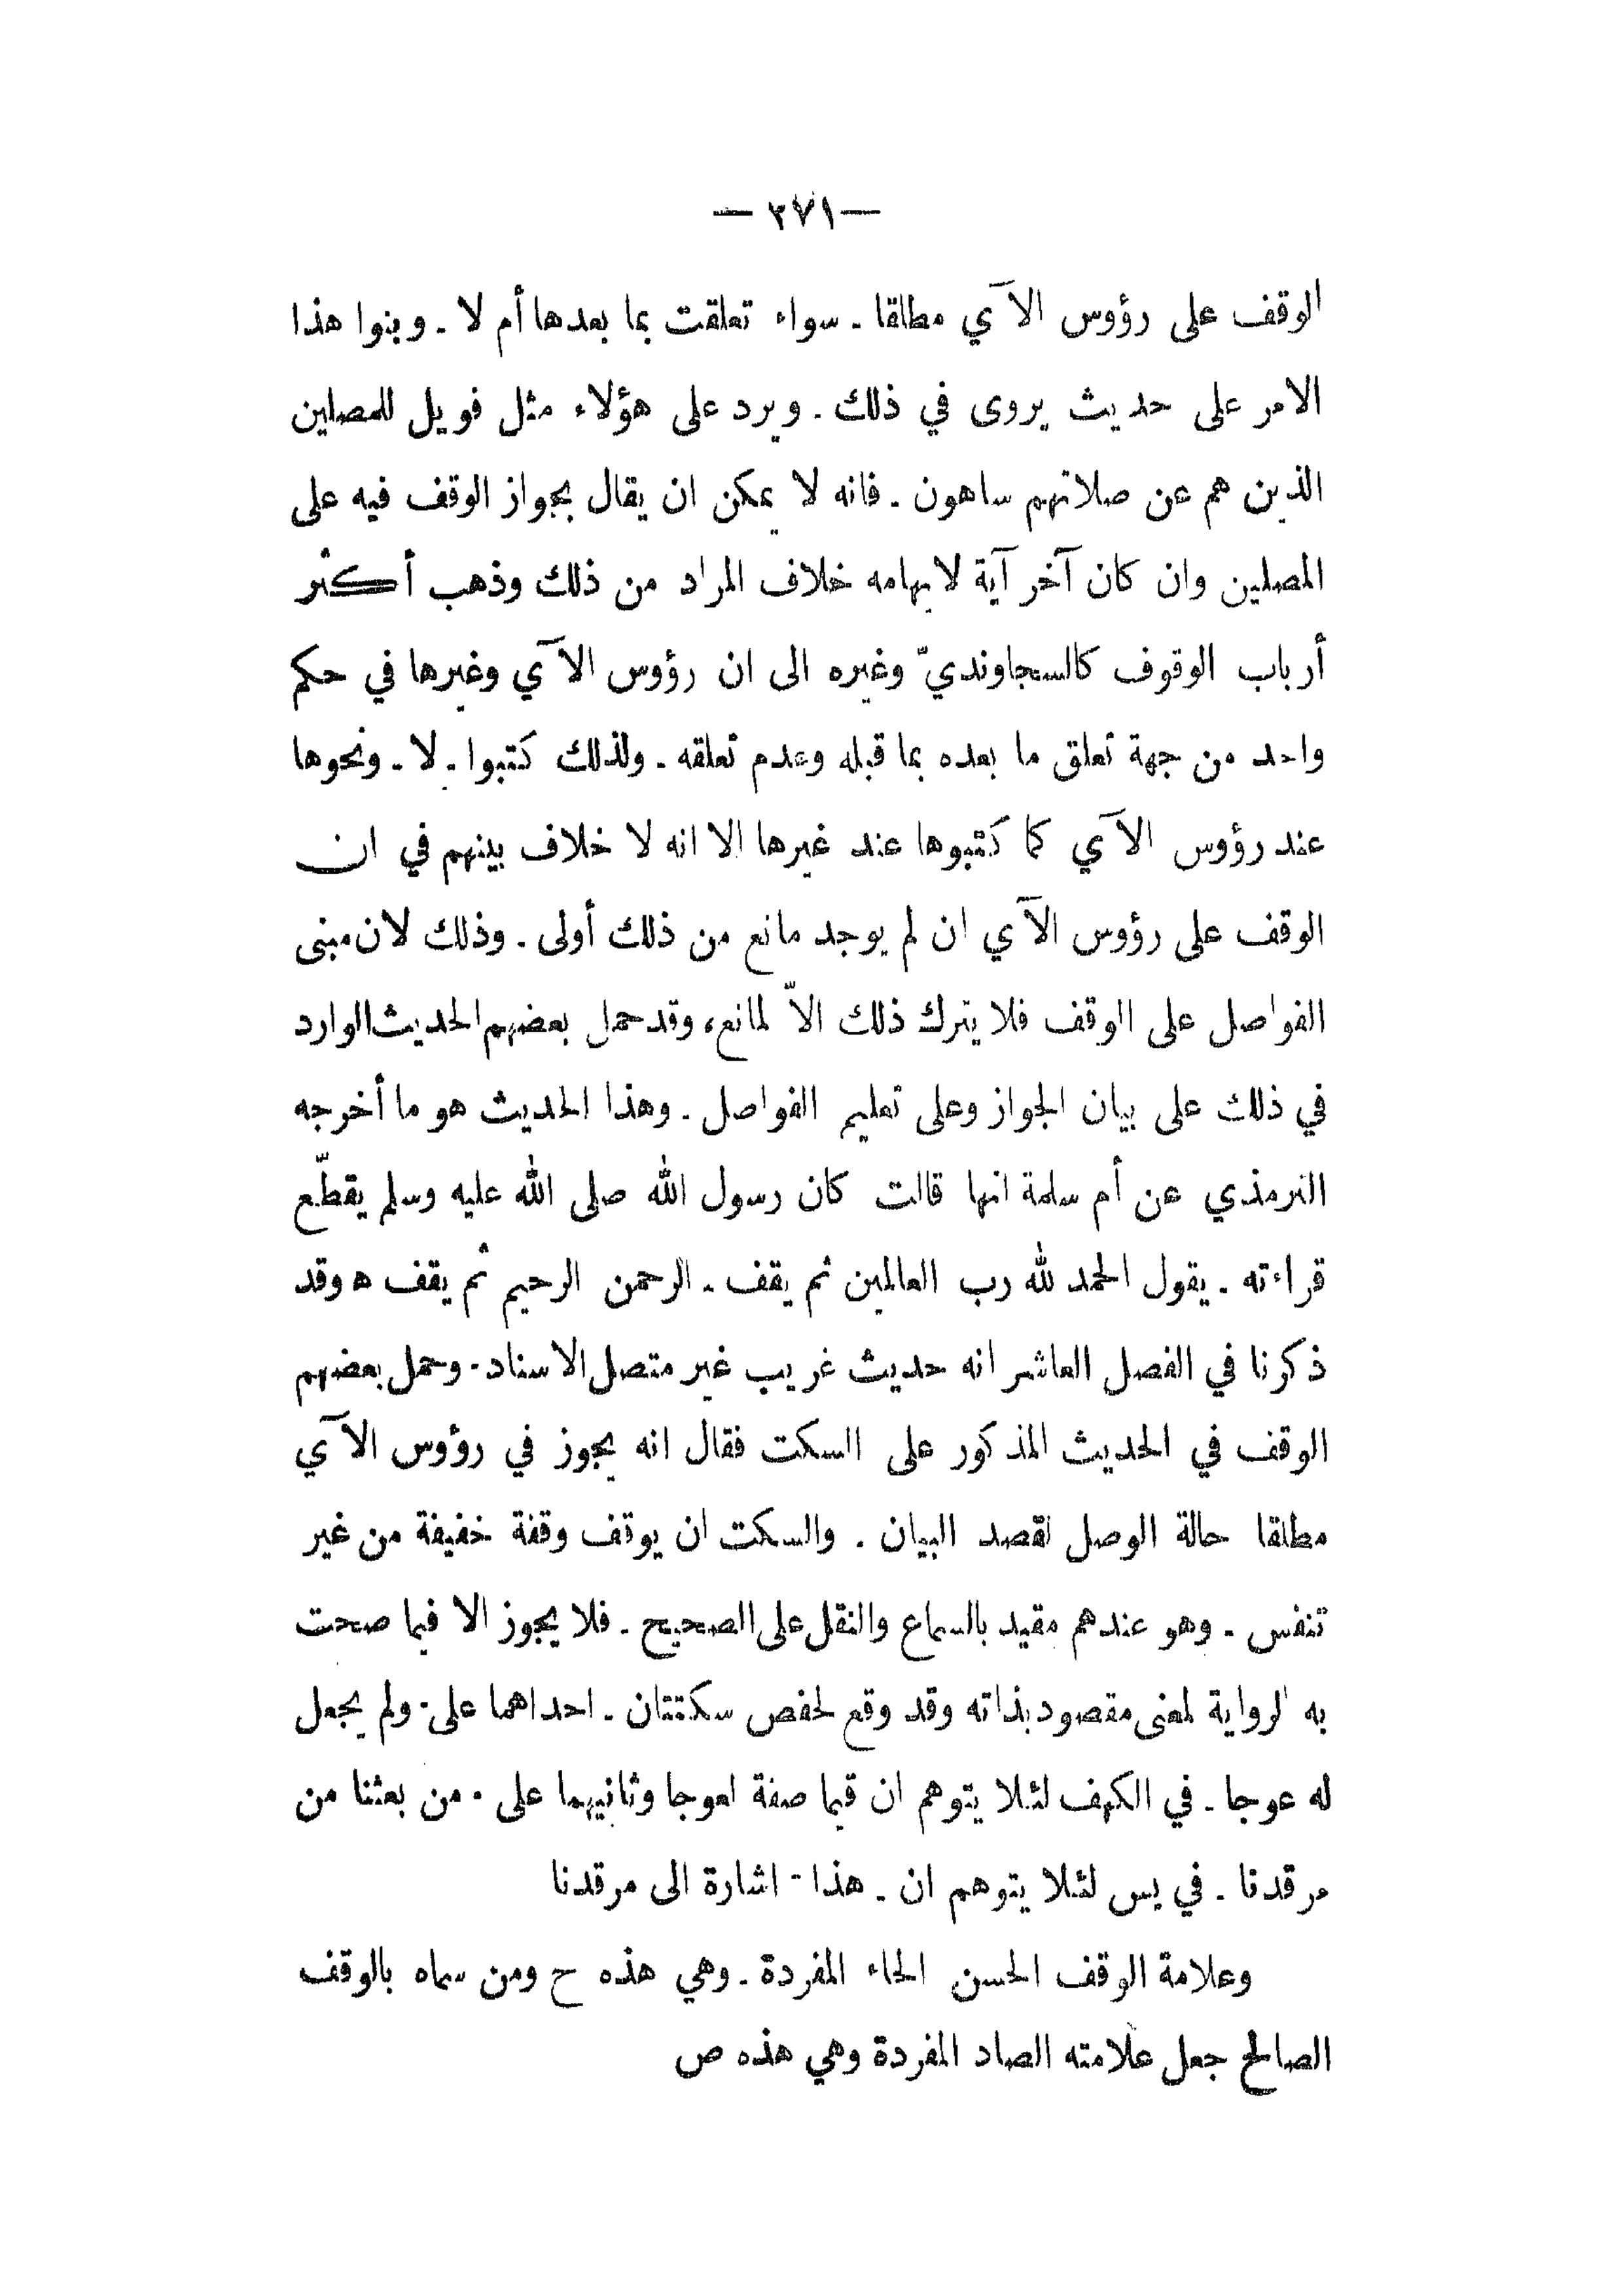 — ٢٧١ —
الوقف على رؤوس الآي مطلقا ـ سواء تعلقت بما بعدها أم لا ـ وبنوا هذا
الامر على حديث يروى في ذلك ـ ويرد على هؤلاء مثل فويل للمصلين
الذين هم عن صلاتهم ساهون ـ فانه لا يمكن ان يقال بجواز الوقف فيه على
المصلين وان كان آخر آية لايهامه خلاف المراد من ذلك وذهب أكثر
أرباب الوقوف كالسجاونديّ وغيره الى ان رؤوس الآي وغيرها في حكم
واحد من جهة تعلق ما بعده بما قبله وعدم تعلقه ـ ولذلك كتبوا ـ لا ـ ونحوها
عند رؤوس الآي كما كتبوها عند غيرها الا انه لا خلاف بينهم في ان
الوقف على رؤوس الآي ان لم يوجد مانع من ذلك أولى ـ وذلك لان مبنى
الفواصل على الوقف فلا يترك ذلك الاّ لمانع، وقد حمل بعضهم الحديث الوارد
في ذلك على بيان الجواز وعلى تعليم الفواصل ـ وهذا الحديث هو ما أخرجه
الترمذي عن أم سلمة انها قالت كان رسول الله صلى الله عليه وسلم يقطّع
قراءته ـ يقول الحمد لله رب العالمين ثم يقف ـ الرحمن الرحيم ثم يقف ه وقد
ذكرنا في الفصل العاشر انه حديث غريب غير متصل الاسناد ـ وحمل بعضهم
الوقف في الحديث المذكور على السكت فقال انه يجوز في رؤوس الآي
مطلقا حالة الوصل لقصد البيان . والسكت ان يوقف وقفة خفيفة من غير
تنفس ـ وهو عندهم مقيد بالسماع والنقل على الصحيح ـ فلا يجوز الا فيما صحت
به الرواية لمعنى مقصود بذاته وقد وقع لحفص سكتتان ـ احداهما على ـ ولم يجعل
له عوجا ـ في الكهف لئلا يتوهم ان قيما صفة لعوجا وثانيهما على ـ من بعثنا من
مرقدنا ـ في يس لئلا يتوهم ان ـ هذا ـ اشارة الى مرقدنا
وعلامة الوقف الحسن الحاء المفردة ـ وهي هذه ح ومن سماه بالوقف
الصالح جعل علامته الصاد المفردة وهي هذه ص